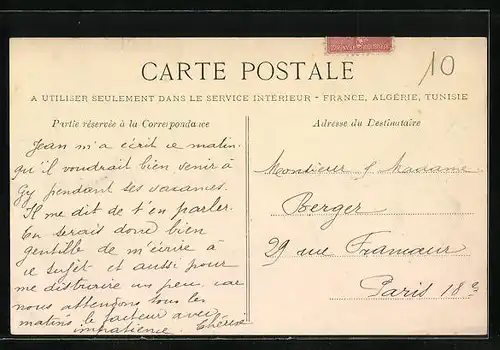 10
CARTE POSTALE
A UTILISER SEULEMENT DANS LE SERVICE INTÉRIEUR - FRANCE, ALGÉRIE, TUNISIE
Partie réservée à la Correspondance
Adresse du Destinataire
Jean m'a écrit ce matin
qu'il voudrait bien venir à
Gy pendant ses vacances.
Il me dit de t'en parler.
Tu serais donc bien
gentille de m'écrire à
ce sujet et aussi pour
me distraire un peu. car
nous attendons tous les
matins le facteur avec
impatience. Thérèse
Monsieur & Madame
Berger
29 rue
Paris 18e